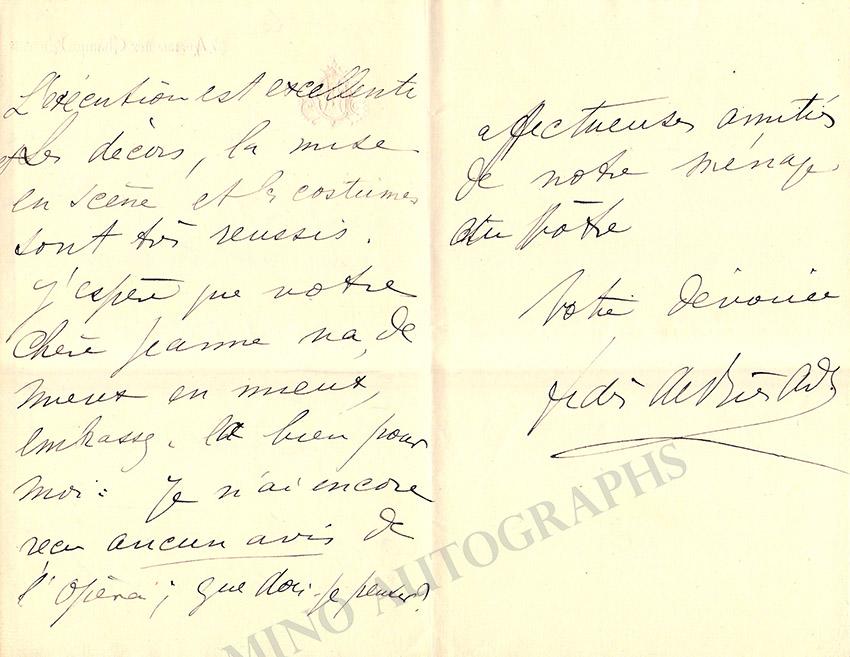 L'exécution est excellente
Les décors, la mise
en scène et les costumes
sont très reussis.
J'espère que votre
chère Jeanne va, de
mieux en mieux,
embrassez. la bien pour
moi: Je n'ai encore
reçu aucun avis de
l'Opéra; que dois-je penser?
affectueuses amitiés
de notre ménage
au Vôtre
Votre dévouée
Fidès Devriès Adler
MINO AUTOGRAPHS